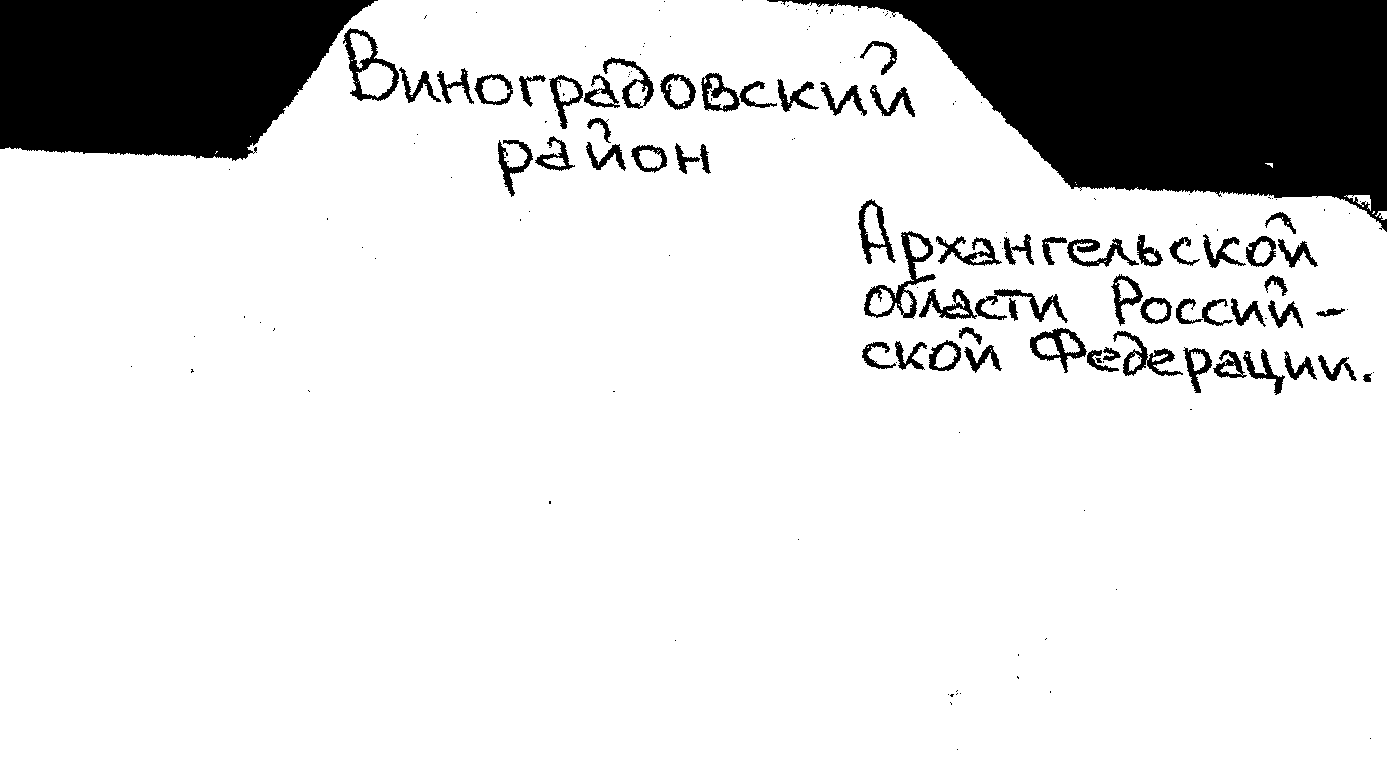 Виноградовский
район
Архангельской
области Россий-
ской Федерации.